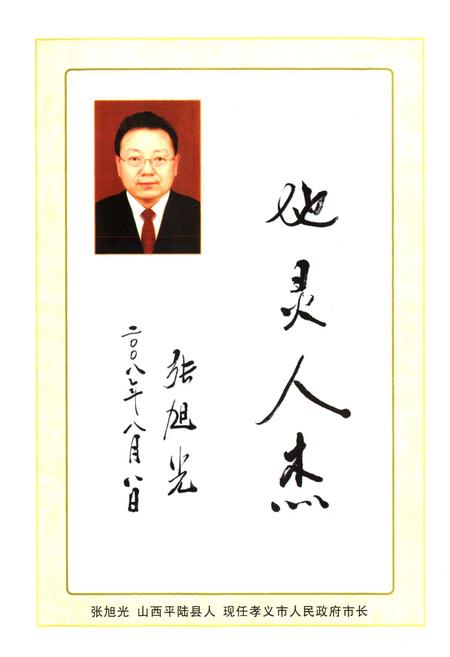 地灵人杰
张旭光
二〇〇八年八月八日
张旭光 山西平陆县人 现任孝义市人民政府市长